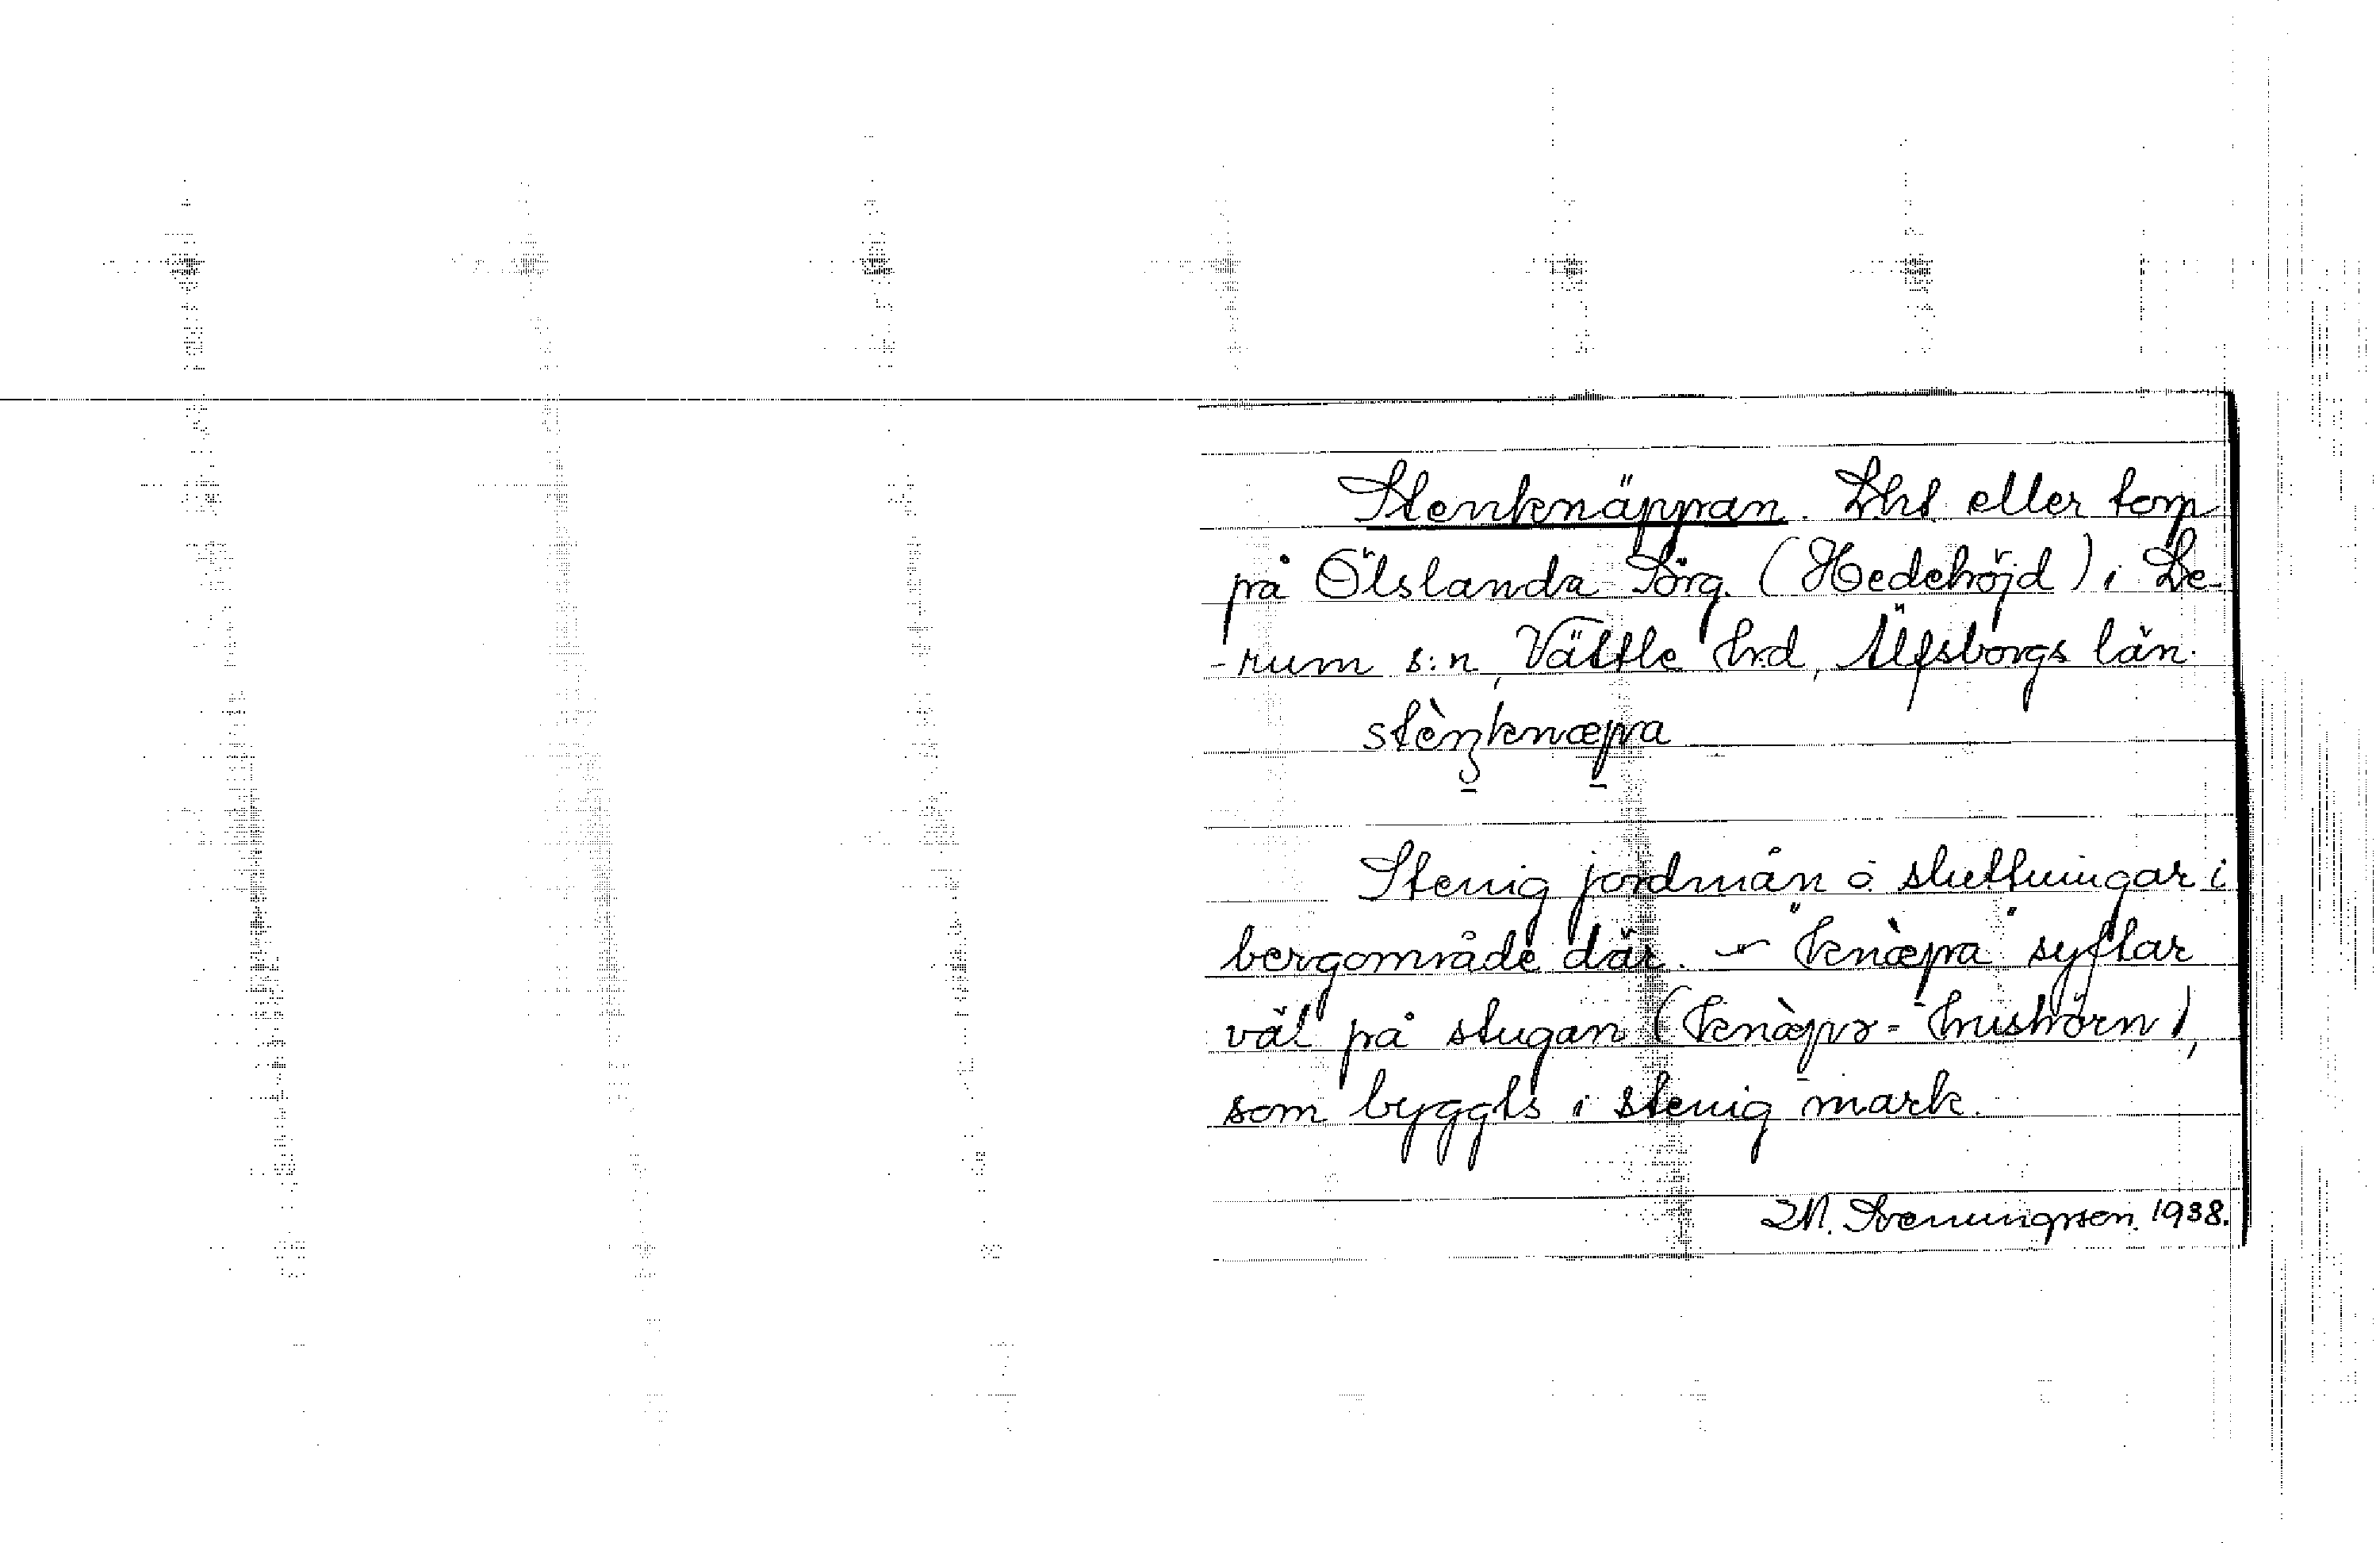 Stenknäppan. Lht eller torp
på Ölslanda Sörg. (Hedehöjd) i Le-
-rum s:n, Vättle hrd, Älfsborgs län.
stèn̠knæp̠a
Stenig jordmån å sluttningar i
bergområde där. - "knæ̀p̠a" syftar
väl på stugan (knàp̠ɤ = hushörn),
som byggts i stenig mark.
M. Svenungsson. 1938.